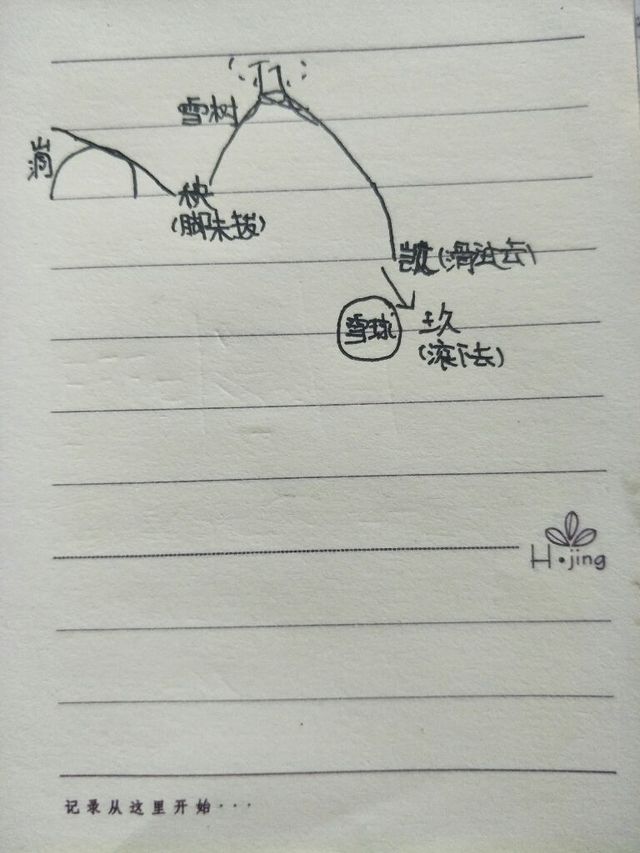 雪树
洞
秧
(脚未拔)
凯(滑过去)
雪球
玖
(滚下去)
H·jing
记录从这里开始···